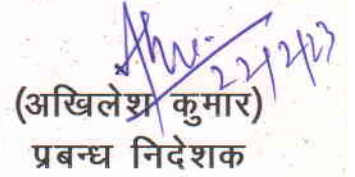 22/2/23
(अखिलेश कुमार)
प्रबन्ध निदेशक